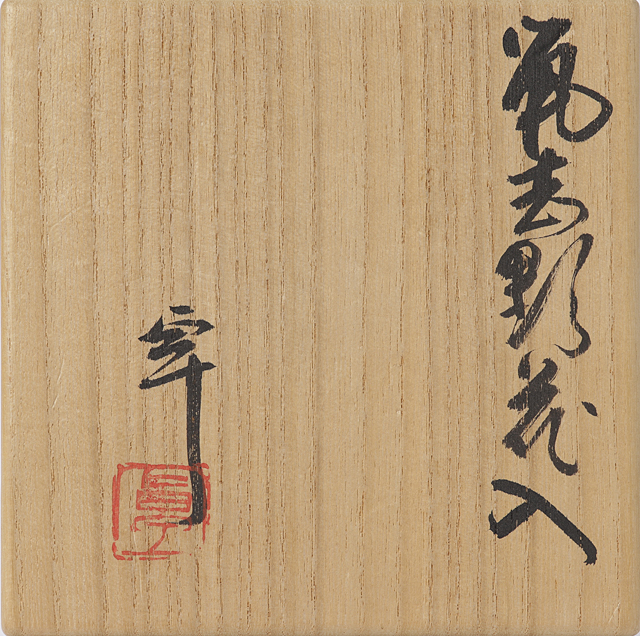 鼡志野花入
宰